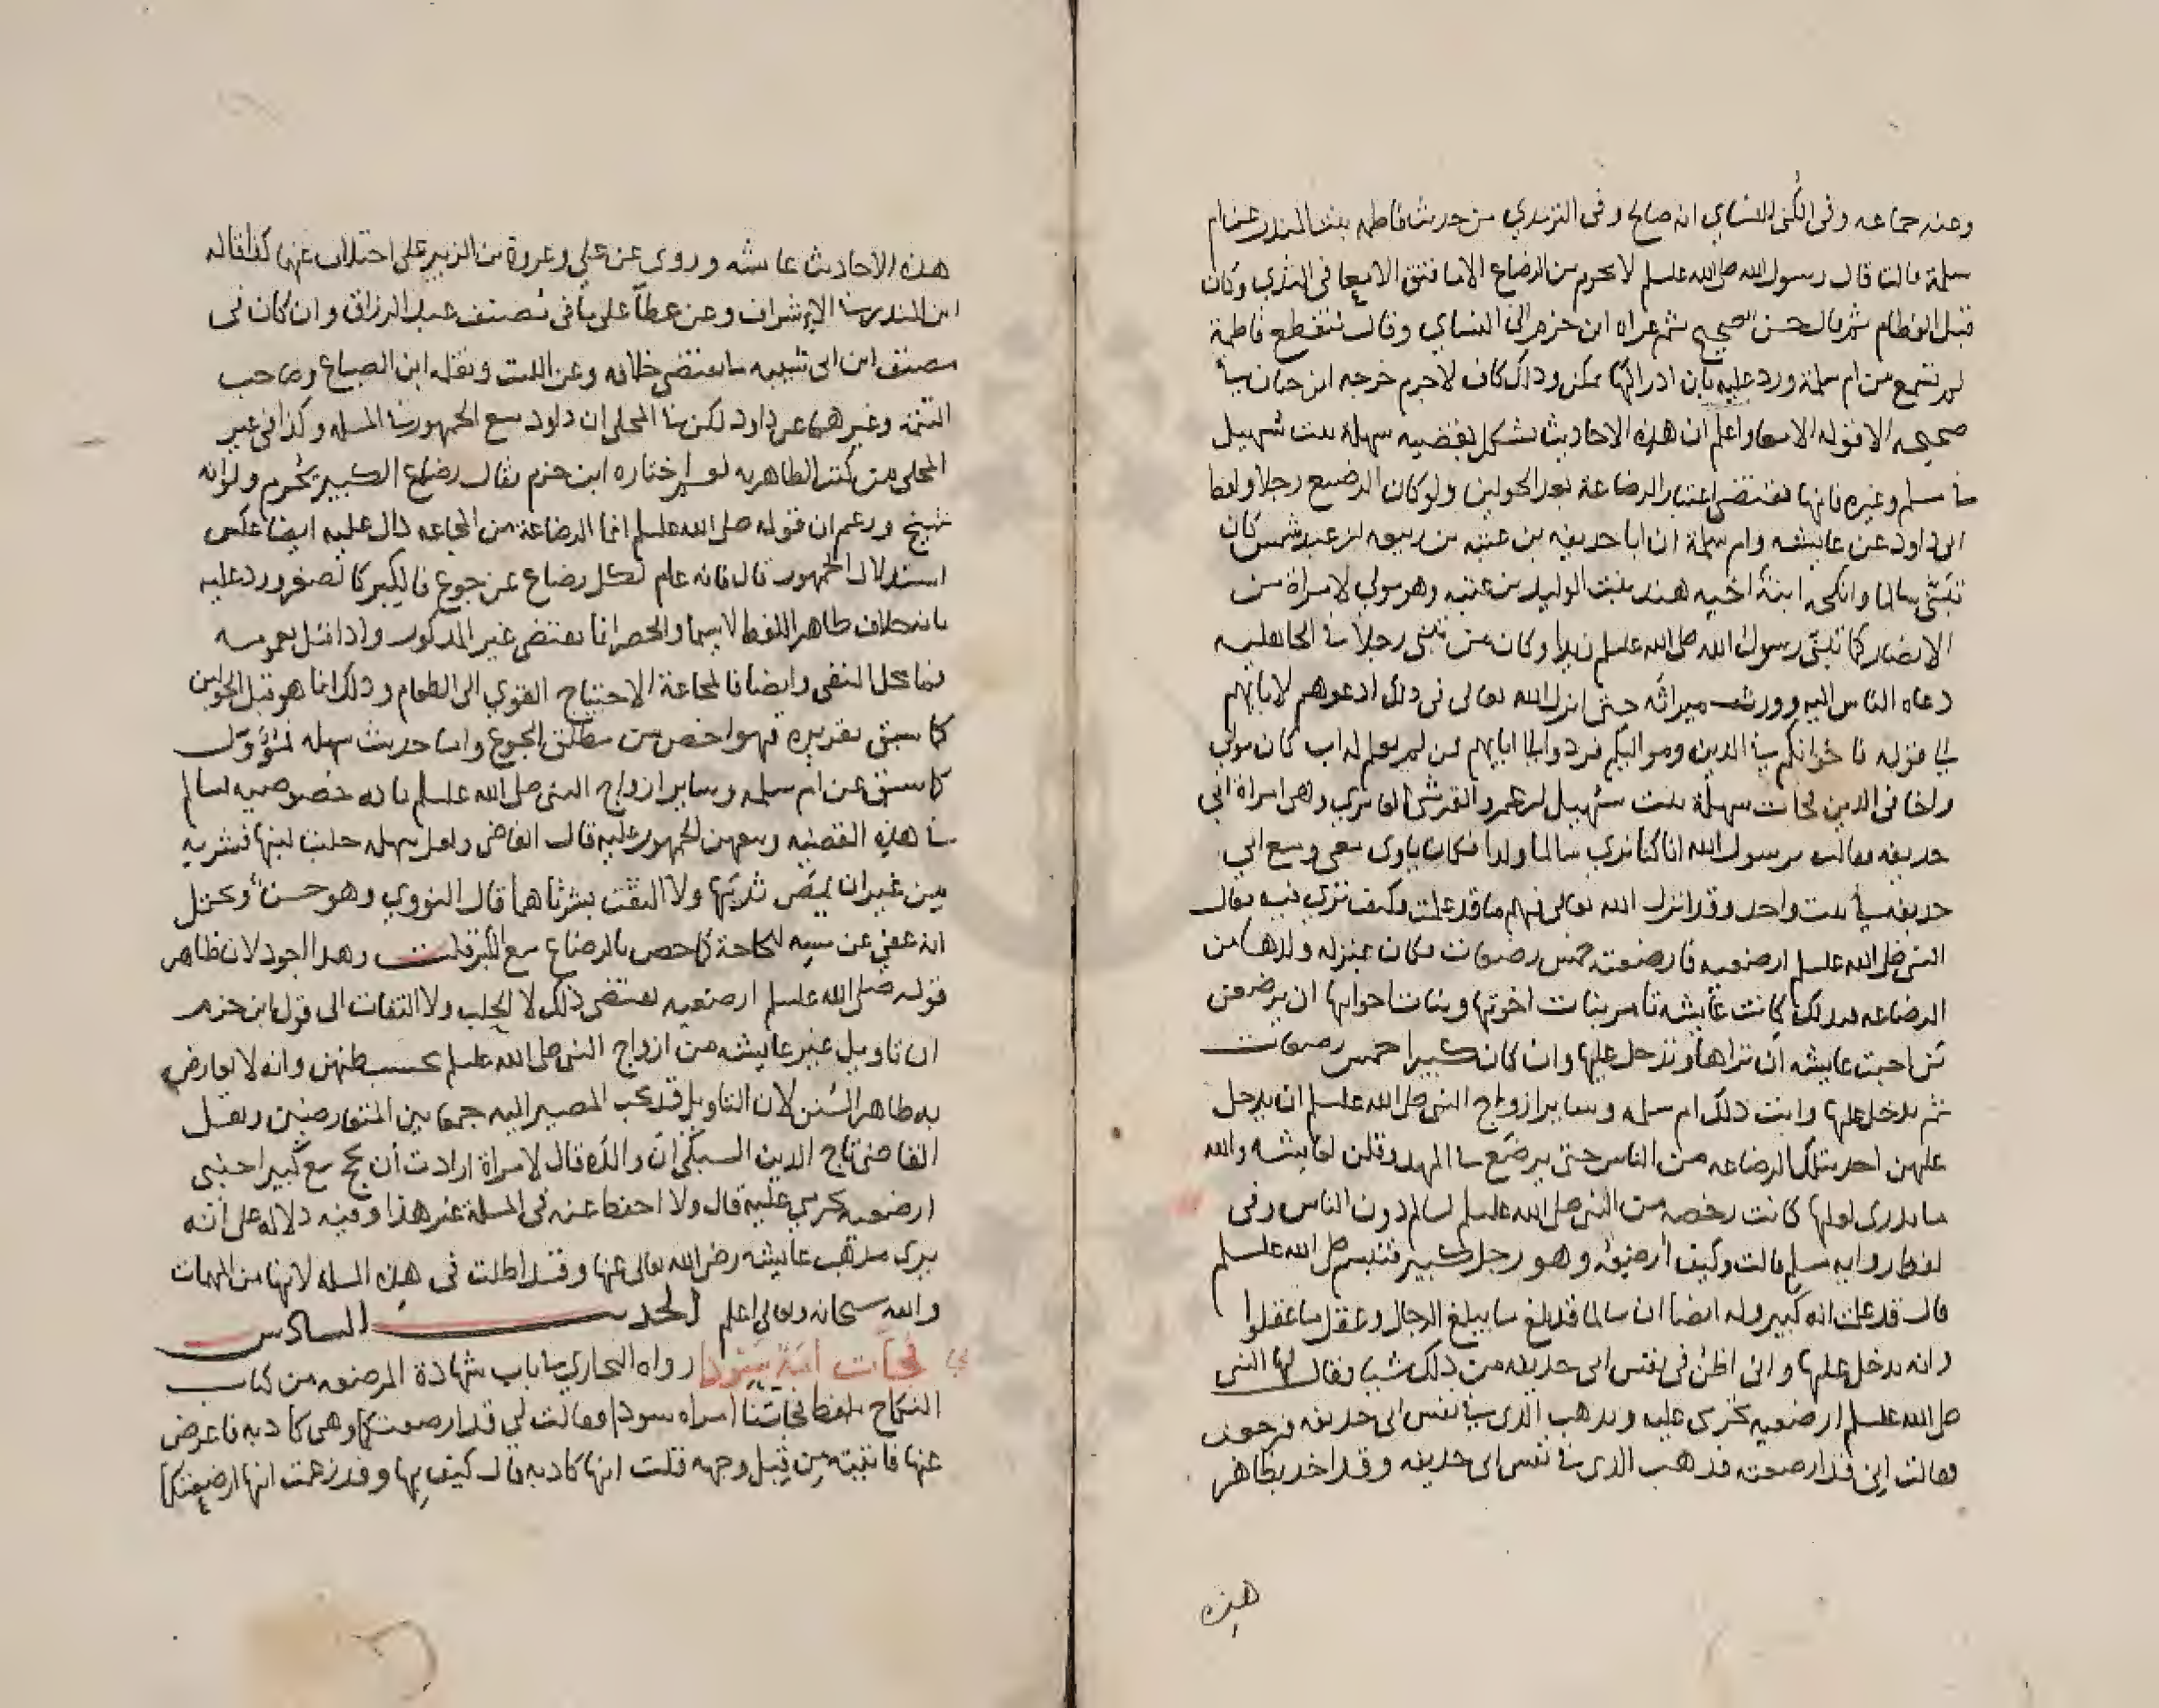 وعنه جماعه وفى الكنى للنساي انه صالح وفى الترمدي من حديث فاطمه بنت المندر عن ام
سلمة قالت قال رسول الله صلى الله عليه وسلم لا يحرم من الرضاع الا ما فتق الامعا فى الثدي وكان
قبل الفطام ثم قال حسن صحيح ثم عزاه ابن حزم الى النساي وقال منقطع فاطمة
لم تسمع من ام سلمة ورد عليه بان ادراكها ممكن وذلك كاف لا جرم خرجه ابن حبان في
صحيحه الا قوله الامعا واعلم ان هذه الاحاديث تشكل بقضيه سهلة بنت سهيل
في مسلم وغيره فانها تقتضى اعتبار الرضاعة بعد الحولين ولو كان الرضيع رجلا ولفظ
ابى داود عن عايشه وام سلمة ان ابا حديفه بن عتبه بن ربيعه بن عبد شمس كان
تبنى سالما وانكحه ابنة اخيه هند بنت الوليد بن عتبه وهو مولى لامراة من
الانصار كما تبنى رسول الله صلى الله عليه وسلم زيدا وكان من تبنى رجلا في الجاهليه
دعاه الناس اليه وورث ميراثه حتى انزل الله تعالى فى ذلك ادعوهم لابايهم
الى قوله فاخوانكم في الدين ومواليكم فردوا الى ابايهم فمن لم يعلم له اب كان مولى
واخا فى الدين فجات سهلة بنت سهيل بن عمرو القرشى العامري وهى امراة ابي
حديفه فقالت يرسول الله انا كنا نري سالما ولدا فكان ياوى معى ومع ابي
حديفه في بيت واحد وقد انزل الله تعالى فيهم ما قد علمت فكيف ترى فيه فقال
النبى صلى الله عليه وسلم ارضعيه فارضعته خمس رضعات فكان بمنزله ولدها من
الرضاعه فبدلك كانت عايشه تامر بنات اخوتها وبنات اخواتها ان يرضعن
من احبت عايشه ان يراها ويدخل عليها وان كان كبيرا خمس رضعات
ثم يدخل عليها وابت ذلك ام سلمه وساير ازواج النبى صلى الله عليه وسلم ان يدخل
عليهن احد بتلك الرضاعه من الناس حتى يرضع في المهد وقلن لعايشه والله
ما ندرى لعلها كانت رخصه من النبى صلى الله عليه وسلم لسالم دون الناس وفى
لفظ روايه مسلم قالت وكيف ارضعه وهو رجل كبير فتبسم صلى الله عليه وسلم
قال قد علمت انه كبير وله ايضا ان سالما قد بلغ ما يبلغ الرجال وعقل ما عقلوا
وانه يدخل عليها وانى اظن فى نفس ابى حديفه من ذلك شيا فقال لها النبى
صلى الله عليه وسلم ارضعيه تحرمى عليه ويدهب الذى في نفس ابى حديفه فرجعت
فقالت انى قد ارضعته فدهب الدى في نفس ابى حديفه وقد اخد بظاهر
هذه
هذه الاحاديث عايشه وروى عن علي وعروة بن الزبير على اختلاف عنها كذا قاله
ابن المندر في الاشراف وعن عطا على ما فى مصنف عبد الرزاق وان كان فى
مصنف ابن ابى شيبه ما يقتضى خلافه وعن الليث ونقله ابن الصباغ وصاحب
التتمة وغيرهما عن داود لكن في المحلى ان داود مع الجمهور في المسله وكذا فى غير
المحلى من كتب الظاهريه نعم اختاره ابن حزم فقال رضاع الكبير يحرم ولو انه
شيخ وزعم ان قوله صلى الله عليه وسلم انما الرضاعة من المجاعه دال عليه ايضا عكس
استدلال الجمهور قال فانه عام لكل رضاع عن جوع فالكبير كالصغير ورد عليه
بانه خلاف ظاهر اللفظ لاسيما والحصر انما يقتضى غير المدكور وادا قيل بعمومه
فما محل النفى وايضا فالمجاعة الاحتياج القوي الى الطعام وذلك انما هو قبل الحولين
كما سبق تقريره فهو اخص من مطلق الجوع واما حديث سهله فمؤول
كما سبق عن ام سلمه وساير ازواج النبى صلى الله عليه وسلم بانه خصوصيه لسالم
في هذه القضيه ومعهن الجمهور عليه قال القاضى ولعل سهله حلبت لبنها فشربه
من غير ان يمص ثديها ولا التقت بشرتاهما قال النووي وهو حسن ويحتمل
انه عفي عن مسه للحاجة كما خص بالرضاع مع الكبر قلت وهدا اجود لان ظاهر
قوله صلى الله عليه وسلم ارضعيه يقتضى ذلك لا الحلب ولا التفات الى قول ابن حزم
ان تاويل غير عايشه من ازواج النبى صلى الله عليه وسلم بحسب ظنهن وانه لا يعارض
به ظاهر السنن لان التاويل قد يجب المصير اليه جمعا بين المتعارضين ونقل
القاضى تاج الدين السبكى ان والده قال لامراة ارادت ان تحج مع كبير اجنبى
ارضعيه تحرمي عليه قال ولا احفظ عنه فى المسلة غير هذا وفيه دلاله على انه
يرى مذهب عايشه رضى الله تعالى عنها وقد اطلت فى هذه المسله لانها من المهمات
والله سبحانه وتعالى اعلم الحديث السادس
فجات امة سودا رواه البخاري في باب شهادة المرضعه من كتاب
النكاح بلفظ فجاتنا امراه سودا فقالت لى قد ارضعتكما وهى كادبه فاعرض
عنها فاتيته من قبل وجهه قلت انها كادبه قال كيف بها وقد زعمت انها ارضعتكما